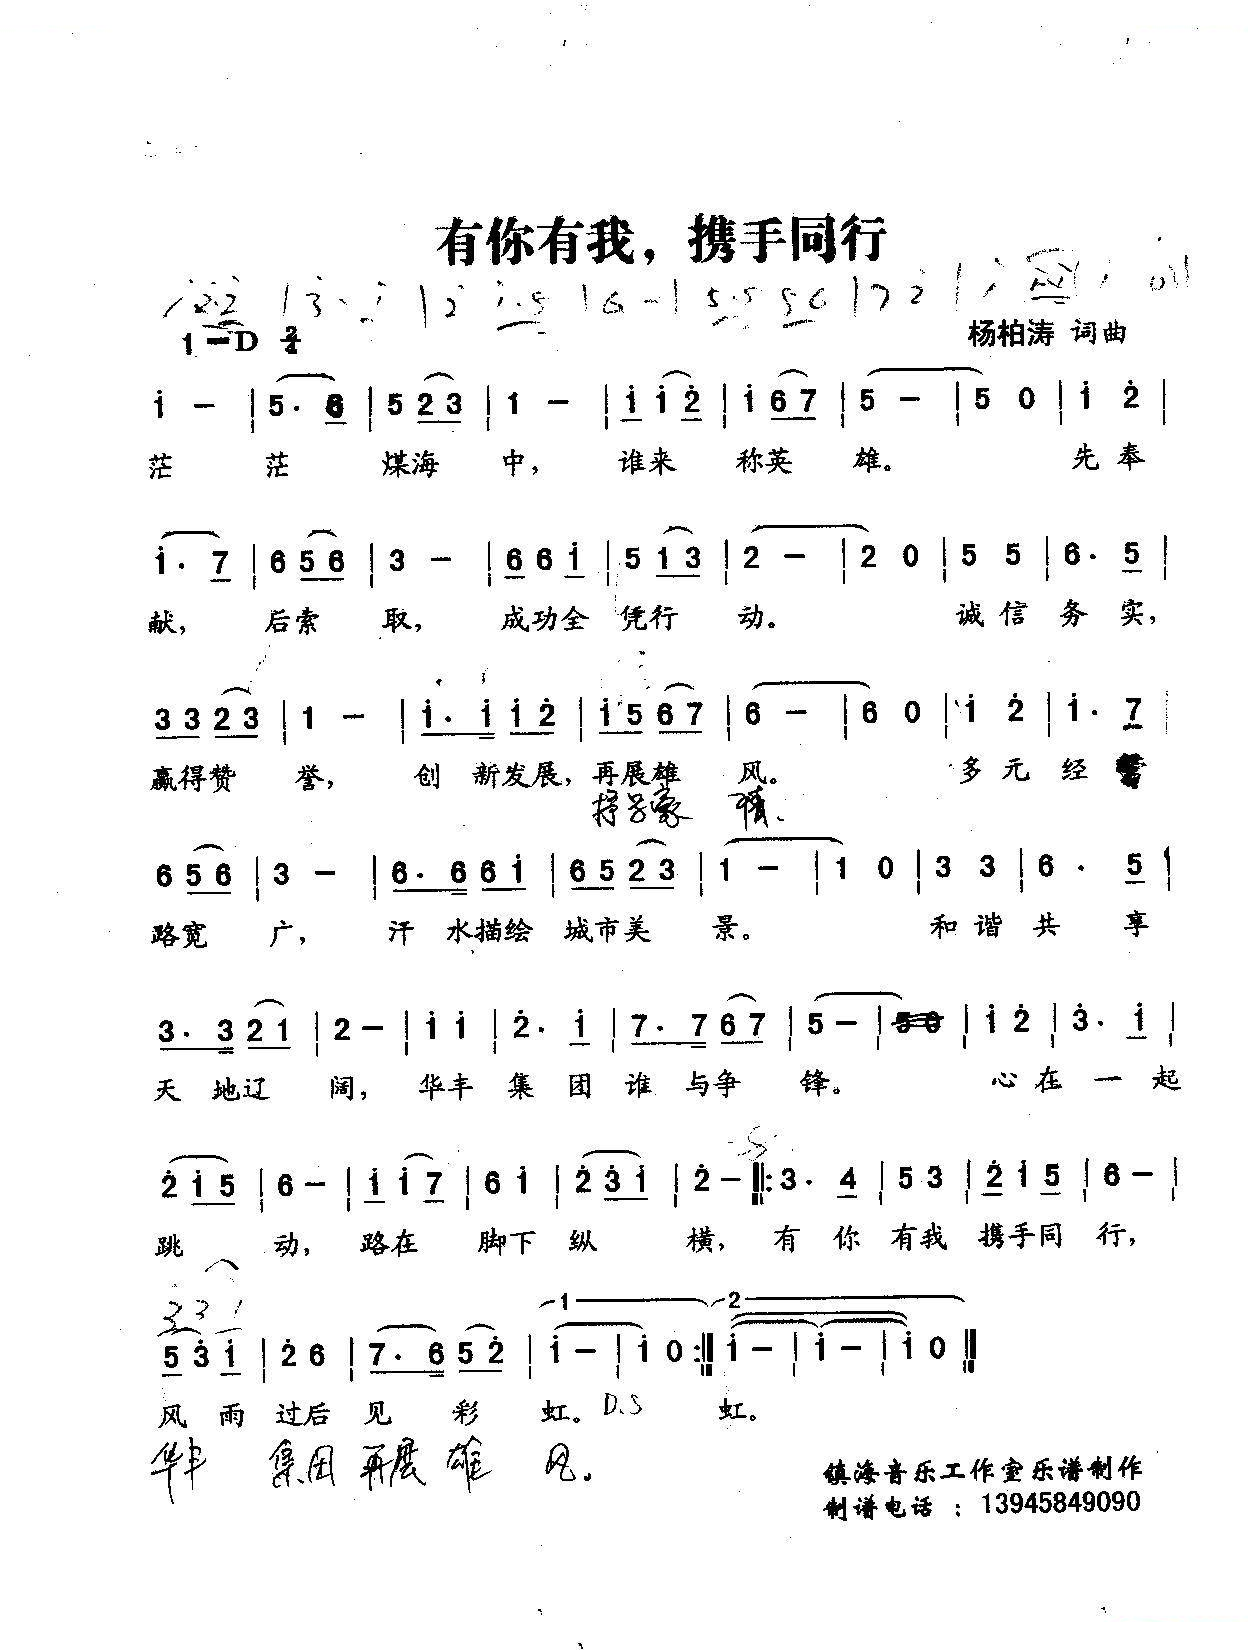 有你有我，携手同行
1=D 2/4
杨柏涛 词曲
i - | 5· 6 | 5 2 3 | 1 - | i i 2 | i 6 7 | 5 - | 5 0 | i 2 |
茫 茫 煤海 中， 谁来 称英 雄。 先奉
i· 7 | 6 5 6 | 3 - | 6 6 i | 5 1 3 | 2 - | 2 0 | 5 5 | 6· 5 |
献， 后索 取， 成功全 凭行 动。 诚信务实，
3 3 2 3 | 1 - | i· i i 2 | i 5 6 7 | 6 - | 6 0 | i 2 | i· 7
赢得赞 誉， 创 新发展，再展雄 风。 多元经
抒豪 情.
6 5 6 | 3 - | 6· 6 6 i | 6 5 2 3 | 1 - | 1 0 | 3 3 | 6· 5 |
路宽 广， 汗 水描绘 城市美 景。 和谐共享
3· 3 2 1 | 2 - | i i | 2· i | 7· 7 6 7 | 5 - | 5 0 | i 2 | 3· i |
天 地辽 阔， 华丰 集 团 谁 与争 锋。 心在一起
2 i 5 | 6 - | i i 7 | 6 i | 2 3 i | 2 - ‖: 3· 4 | 5 3 | 2 i 5 | 6 - |
跳 动， 路在 脚下 纵 横， 有 你 有我 携手同 行，
3 3 1
1 2
5 3 i | 2 6 | 7· 6 5 2 | i - | i 0 :‖ i - | i - | i 0 ‖
风 雨 过后 见 彩 虹。 D.S 虹。
华丰 集团 再展 雄 风。
镇海音乐工作室乐谱制作
制谱电话：13945849090